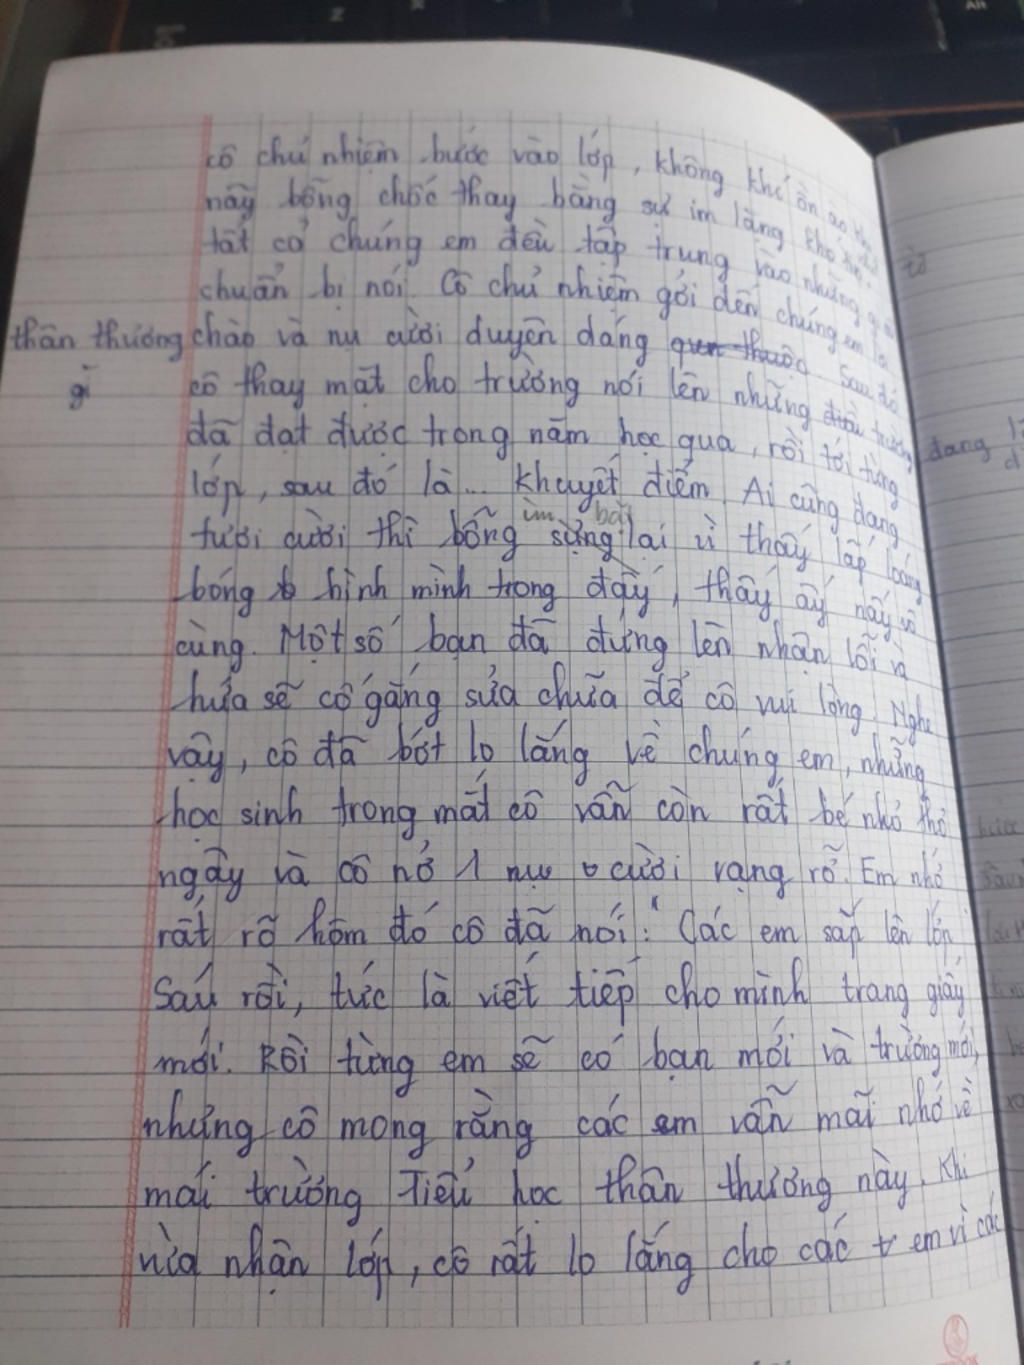 cô chủ nhiệm bước vào lớp, không khí ồn ào
này bỗng chốc thay bằng sự im lặng khó
tất cả chúng em đều tập trung vào những gì
chuẩn bị nói. Cô chủ nhiệm gởi đến chúng em lời
thân thương chào và nụ cười duyên dáng quen thuộc. Sau đó
gì cô thay mặt cho trường nói lên những điều trường
đã đạt được trong năm học qua, rồi tới từng
lớp, sau đó là... khuyết điểm. Ai cũng đang
im bặt
tươi cười thì bỗng sững lại vì thấy lấp loáng
bóng hình mình trong đấy, thấy áy náy vô
cùng. Một số bạn đã đứng lên nhận lỗi và
hứa sẽ cố gắng sửa chữa để cô vui lòng. Nghe
vậy, cô đã bớt lo lắng về chúng em, những
học sinh trong mắt cô vẫn còn rất bé nhỏ thơ
ngây và cô nở 1 nụ cười rạng rỡ. Em nhớ
rất rõ hôm đó cô đã nói: "Các em sắp lên lớp
Sáu rồi, tức là viết tiếp cho mình trang giấy
mới. Rồi từng em sẽ có bạn mới và trường mới,
nhưng cô mong rằng các em vẫn mãi nhớ về
mái trường Tiểu học thân thương này. Khi
vừa nhận lớp, cô rất lo lắng cho các em vì các
đang